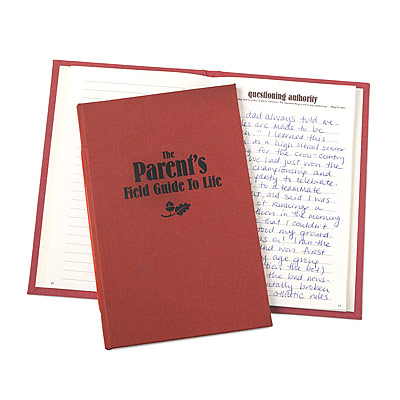 The
Parent's
Field Guide To Life
questioning authority
dad always told me
are made to be
" I learned this
as a high school senior
for the cross-country
we had just won the
championship and
party to celebrate.
to a teammate
out, and said I was
of running a
in the morning
that I couldn't
stood my ground
I ran the
and won first
my age group
the bet)
the bad news:
broken
athletic rules.